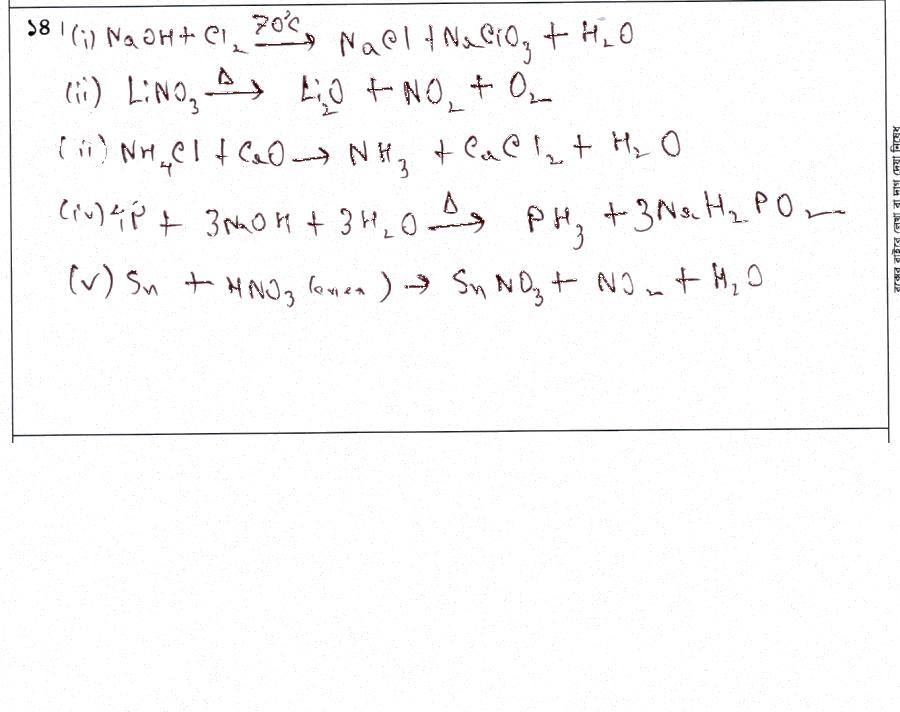 ১৪। (i) NaOH + Cl₂ —70°C→ NaCl + NaClO₃ + H₂O
(ii) LiNO₃ —Δ→ Li₂O + NO₂ + O₂
(ii) NH₄Cl + CaO → NH₃ + CaCl₂ + H₂O
(iv) 4P + 3NaOH + 3H₂O —Δ→ PH₃ + 3NaH₂PO₂
(v) Sn + HNO₃ → SnNO₃ + NO₂ + H₂O